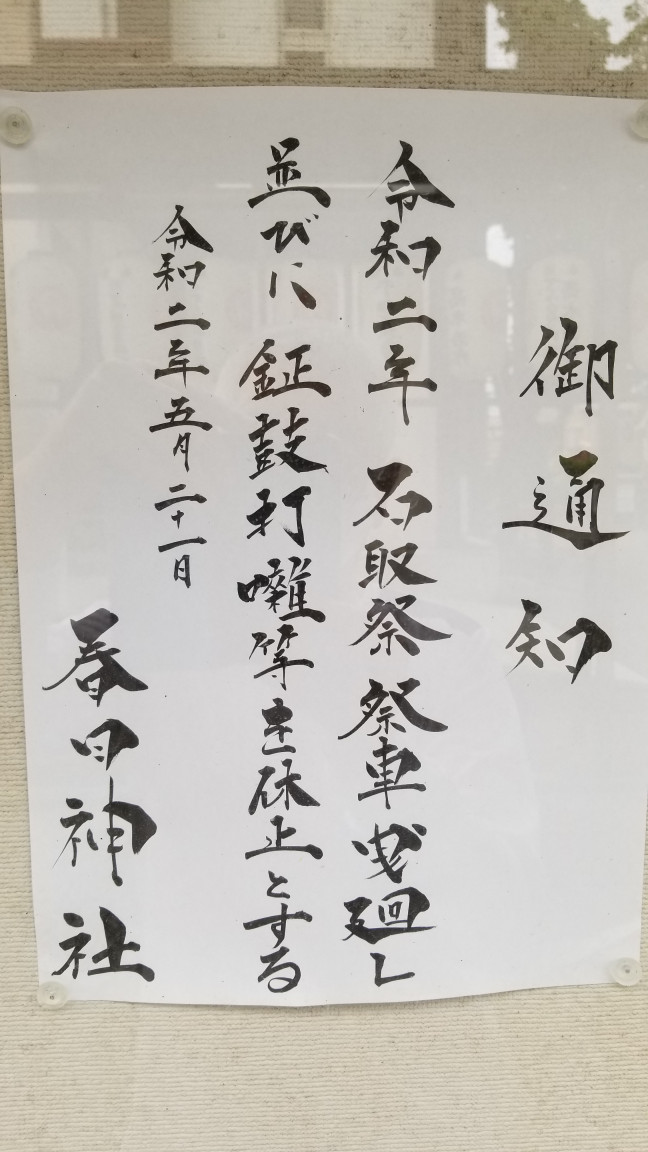 御通知
令和二年 石取祭 祭車曳廻し
並びに 鉦鼓打囃等を休止とする
令和二年五月二十一日
春日神社